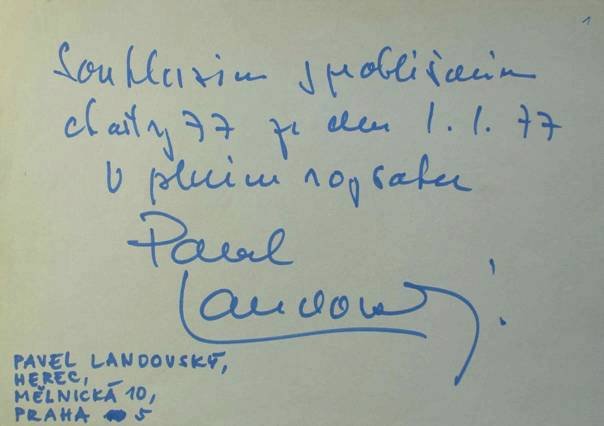 1
Souhlasím s prohlášením
charty 77 ze dne 1. 1. 77
v plném rozsahu
Pavel
Landovský
PAVEL LANDOVSKÝ,
HEREC,
MĚLNICKÁ 10,
PRAHA 5